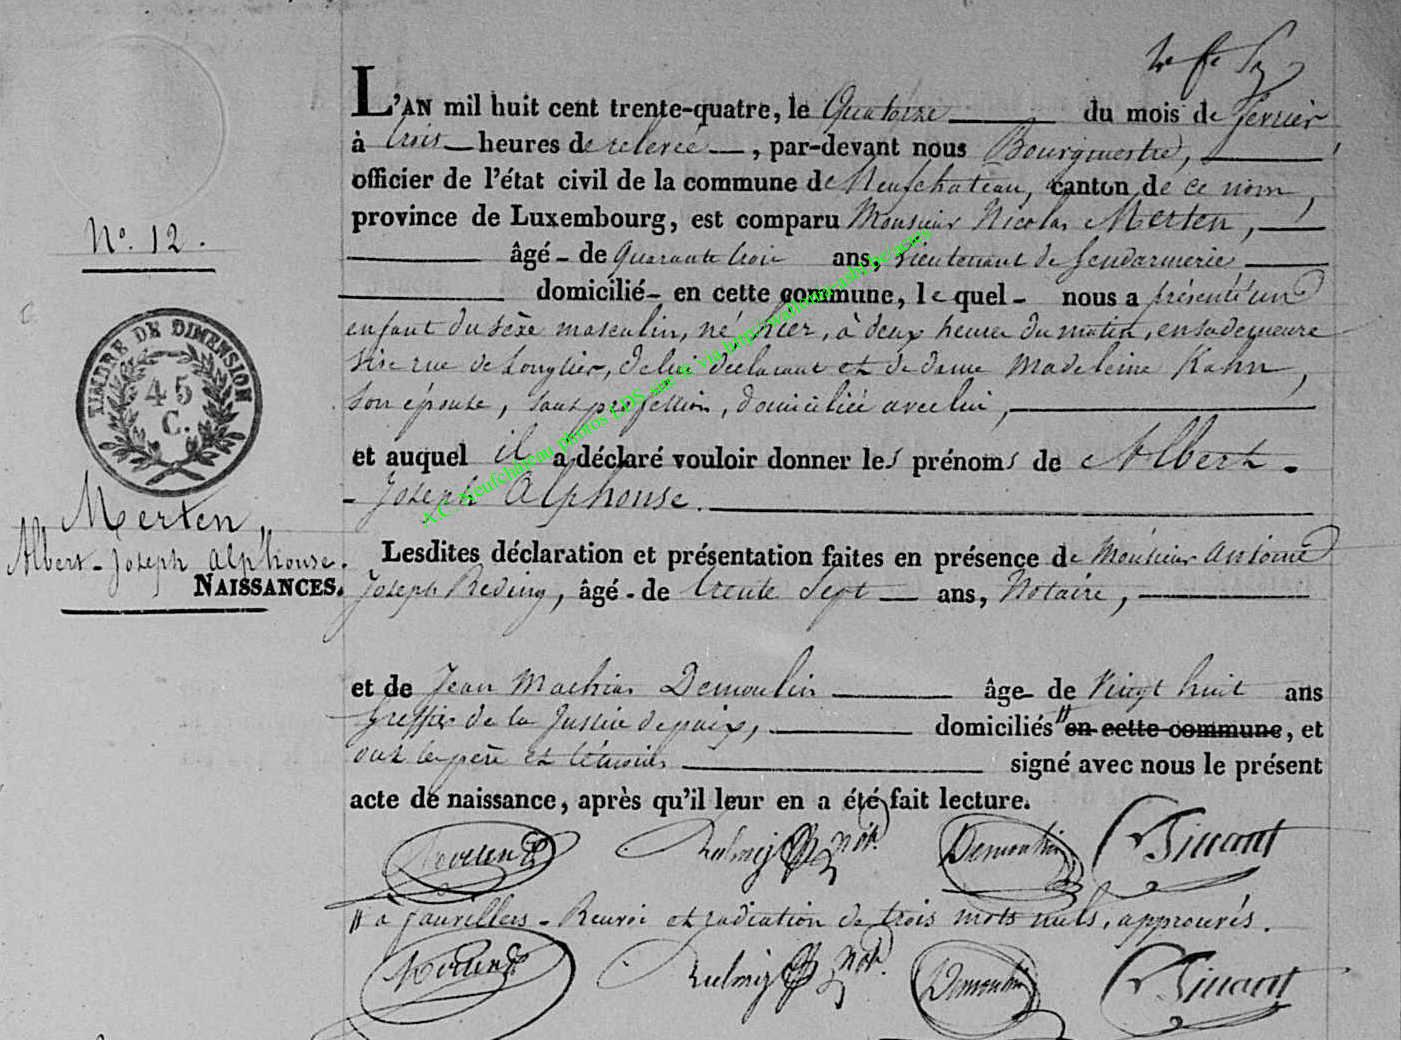 L'AN mil huit cent trente-quatre, le Quatorze du mois de fevrier
à trois heures de relevée, par-devant nous Bourgmestre,
officier de l'état civil de la commune de Neufchateau, canton de ce nom,
province de Luxembourg, est comparu Monsieur Nicolas Merten,
N°. 12.
âgé de Quarante trois ans, Lieutenant de Gendarmerie
domicilié en cette commune, lequel nous a présenté un
enfant du sèxe masculin, né hier, à deux heures du matin, en sa demeure
sise rue de Longlier, de lui déclarant et de dame Madeleine Kahn,
son épouse, sans profession, domiciliée avec lui,
TIMBRE DE DIMENSION
45
C.
et auquel il a déclaré vouloir donner les prénoms de Albert-
-Joseph Alphonse.
Merten,
Albert-Joseph Alphonse.
NAISSANCES.
Lesdites déclaration et présentation faites en présence de Monsieur Antoine
Joseph Reding, âgé de trente Sept ans, Notaire,
et de Jean Mathias Demoulin âge de Vingt huit ans
Greffier de la Justice de paix, domiciliés " en cette commune, et
ont les père et témoins signé avec nous le présent
acte de naissance, après qu'il leur en a été fait lecture.
Merten Not. Demoulin
" à fauvillers - Renvoi et radiation de trois mots nuls, approuvés.
Merten Not. Demoulin
A.C. Neufchâteau photos LDS sur le via http://wallonia-asbl.be/actes